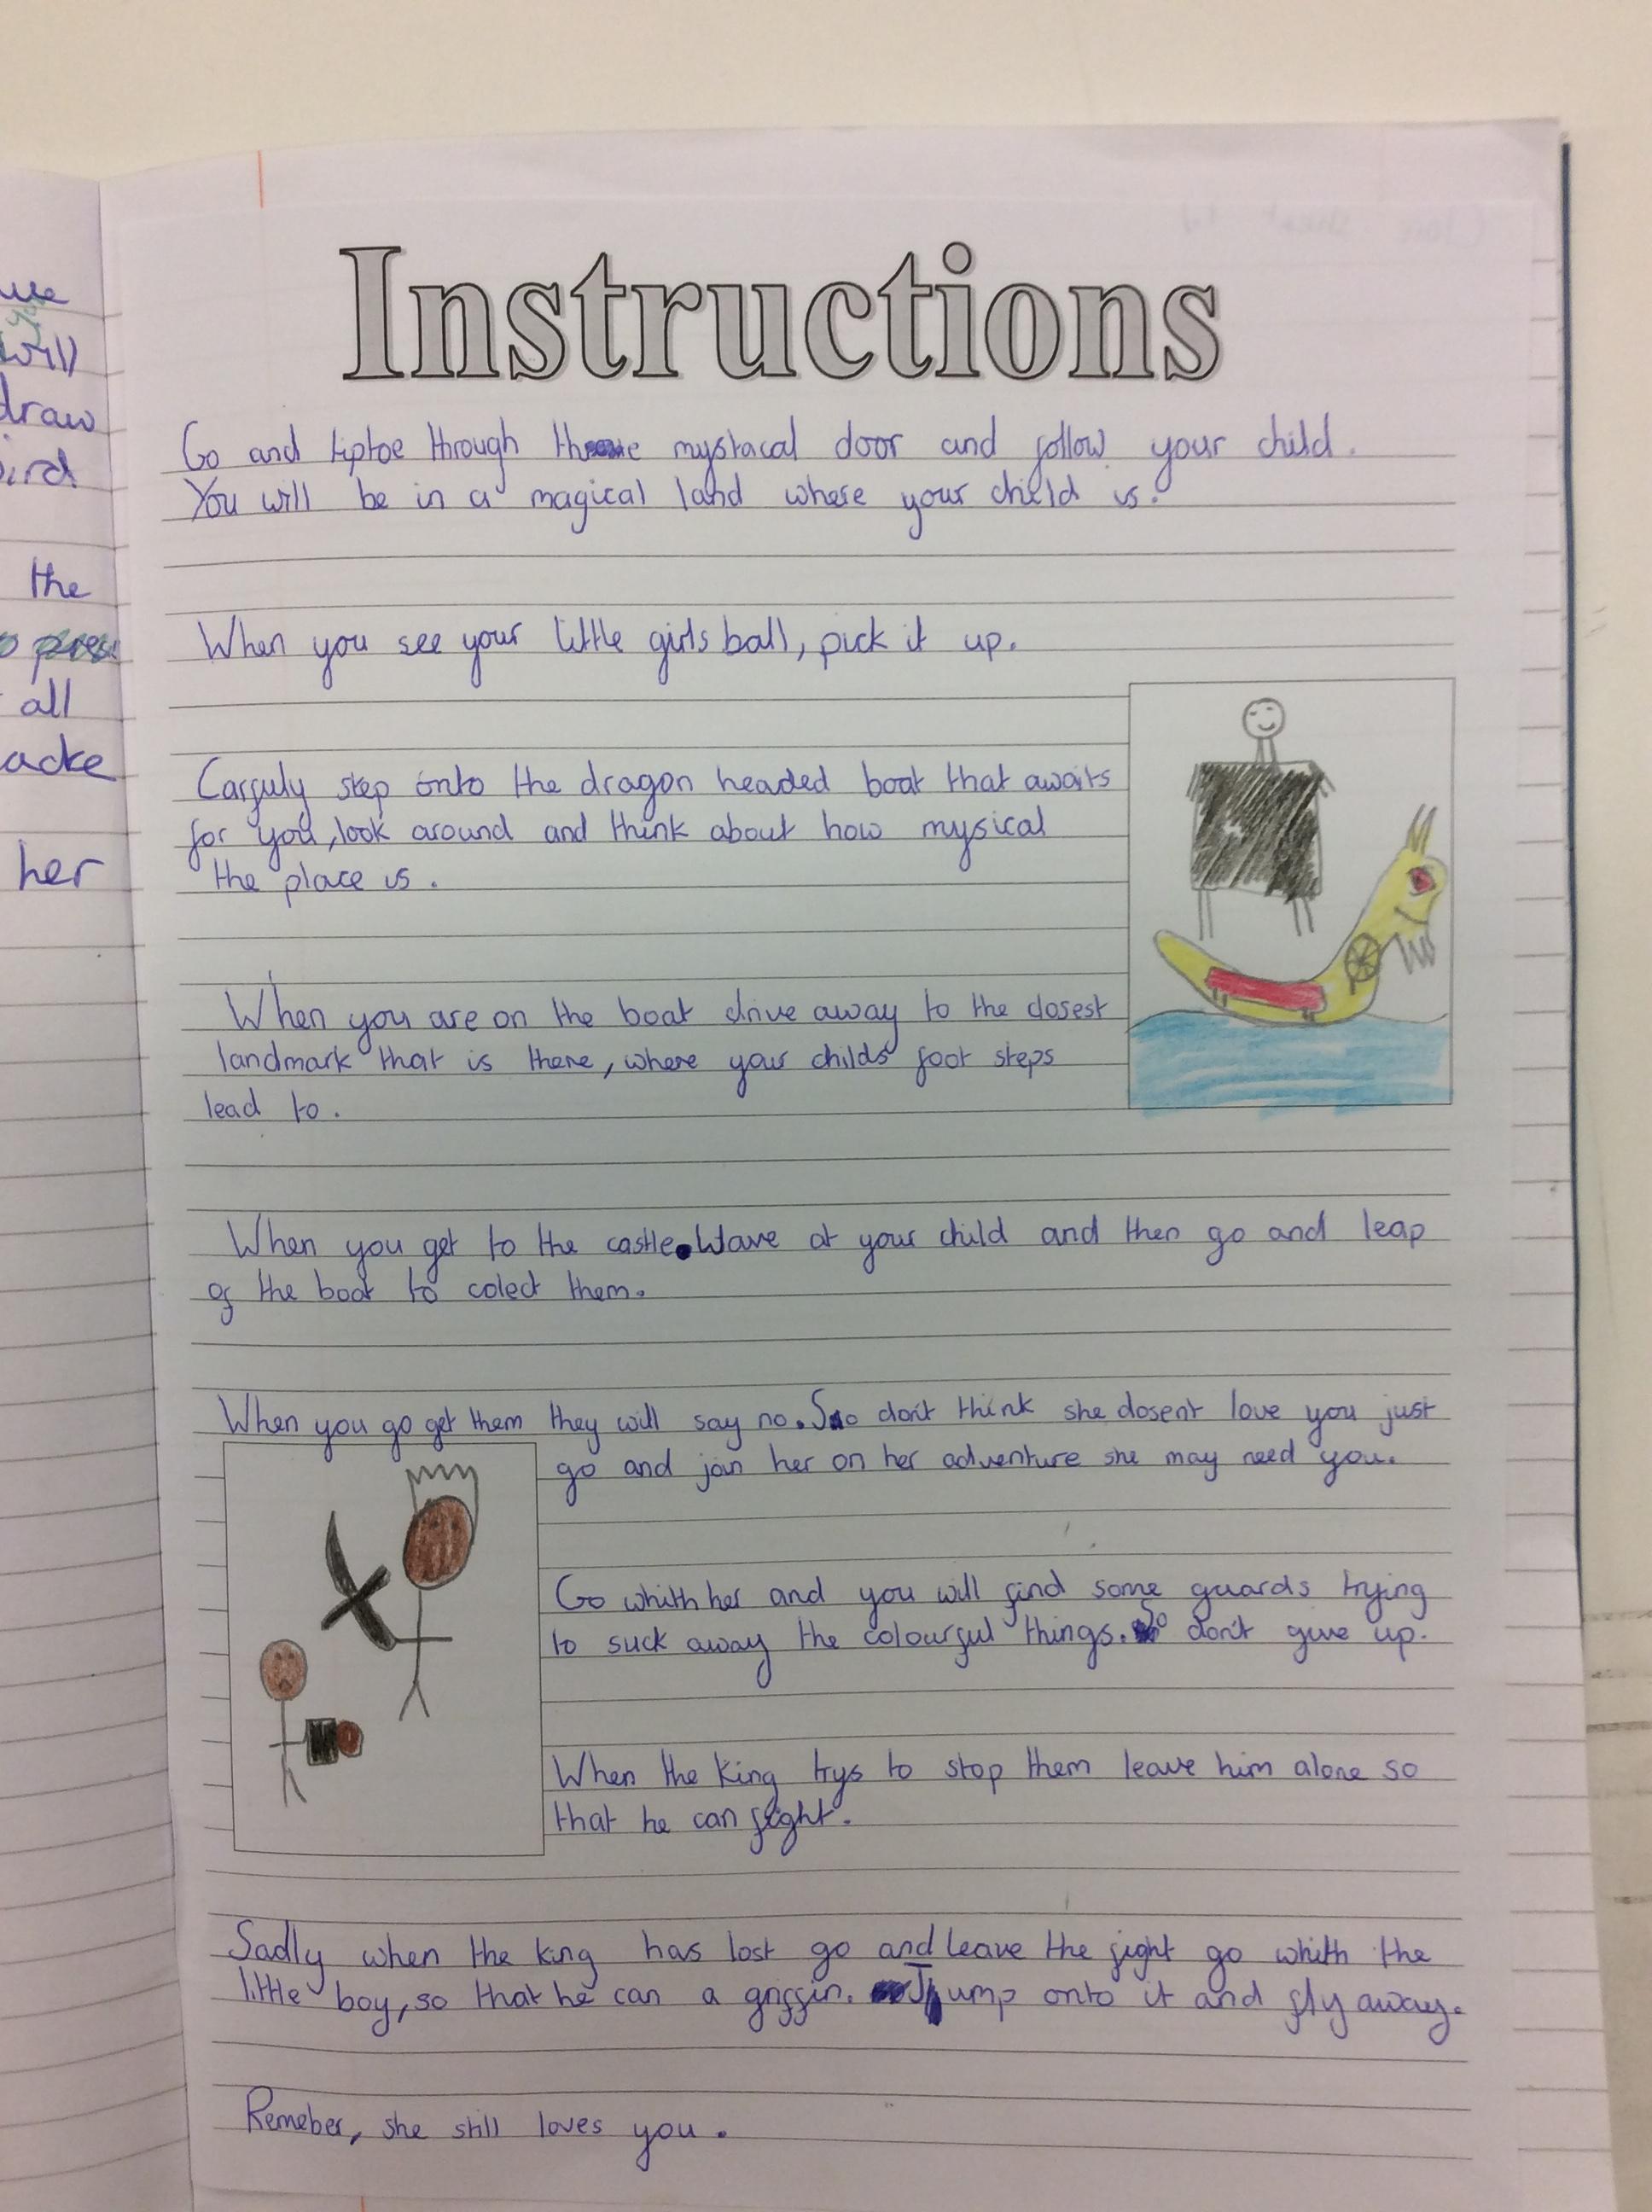 ure
you
will
draw
bird
the
all
acke
her
Instructions
Go and tiptoe through the mystacal door and follow your child.
You will be in a magical land where your child is.
When you see your little girls ball, pick it up.
Carfuly step onto the dragon headed boat that awaits
for you, look around and think about how mysical
the place is.
When you are on the boat drive away to the closest
landmark that is there, where your childs foot steps
lead to.
When you get to the castle. Wave at your child and then go and leap
of the boat to colect them.
When you go get them they will say no. So don't think she dosent love you just
go and join her on her adventure she may need you.
Go whith her and you will find some guards trying
to suck away the colourful things. So don't give up.
When the king trys to stop them leave him alone so
that he can fight.
Sadly when the king has lost go and leave the fight go whith the
little boy, so that he can a griffin. Jump onto it and fly away.
Remeber, she still loves you.